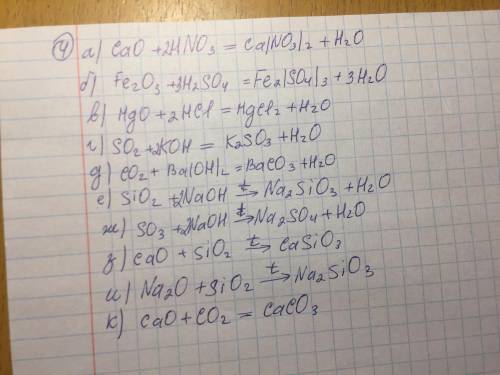 4) а) CaO + 2HNO3 = Ca(NO3)2 + H2O
б) Fe2O3 + 3H2SO4 = Fe2(SO4)3 + 3H2O
в) HgO + 2HCl = HgCl2 + H2O
г) SO2 + 2KOH = K2SO3 + H2O
д) CO2 + Ba(OH)2 = BaCO3 + H2O
е) SiO2 + 2NaOH t→ Na2SiO3 + H2O
ж) SO3 + 2NaOH t→ Na2SO4 + H2O
з) CaO + SiO2 t→ CaSiO3
и) Na2O + SiO2 t→ Na2SiO3
к) CaO + CO2 = CaCO3